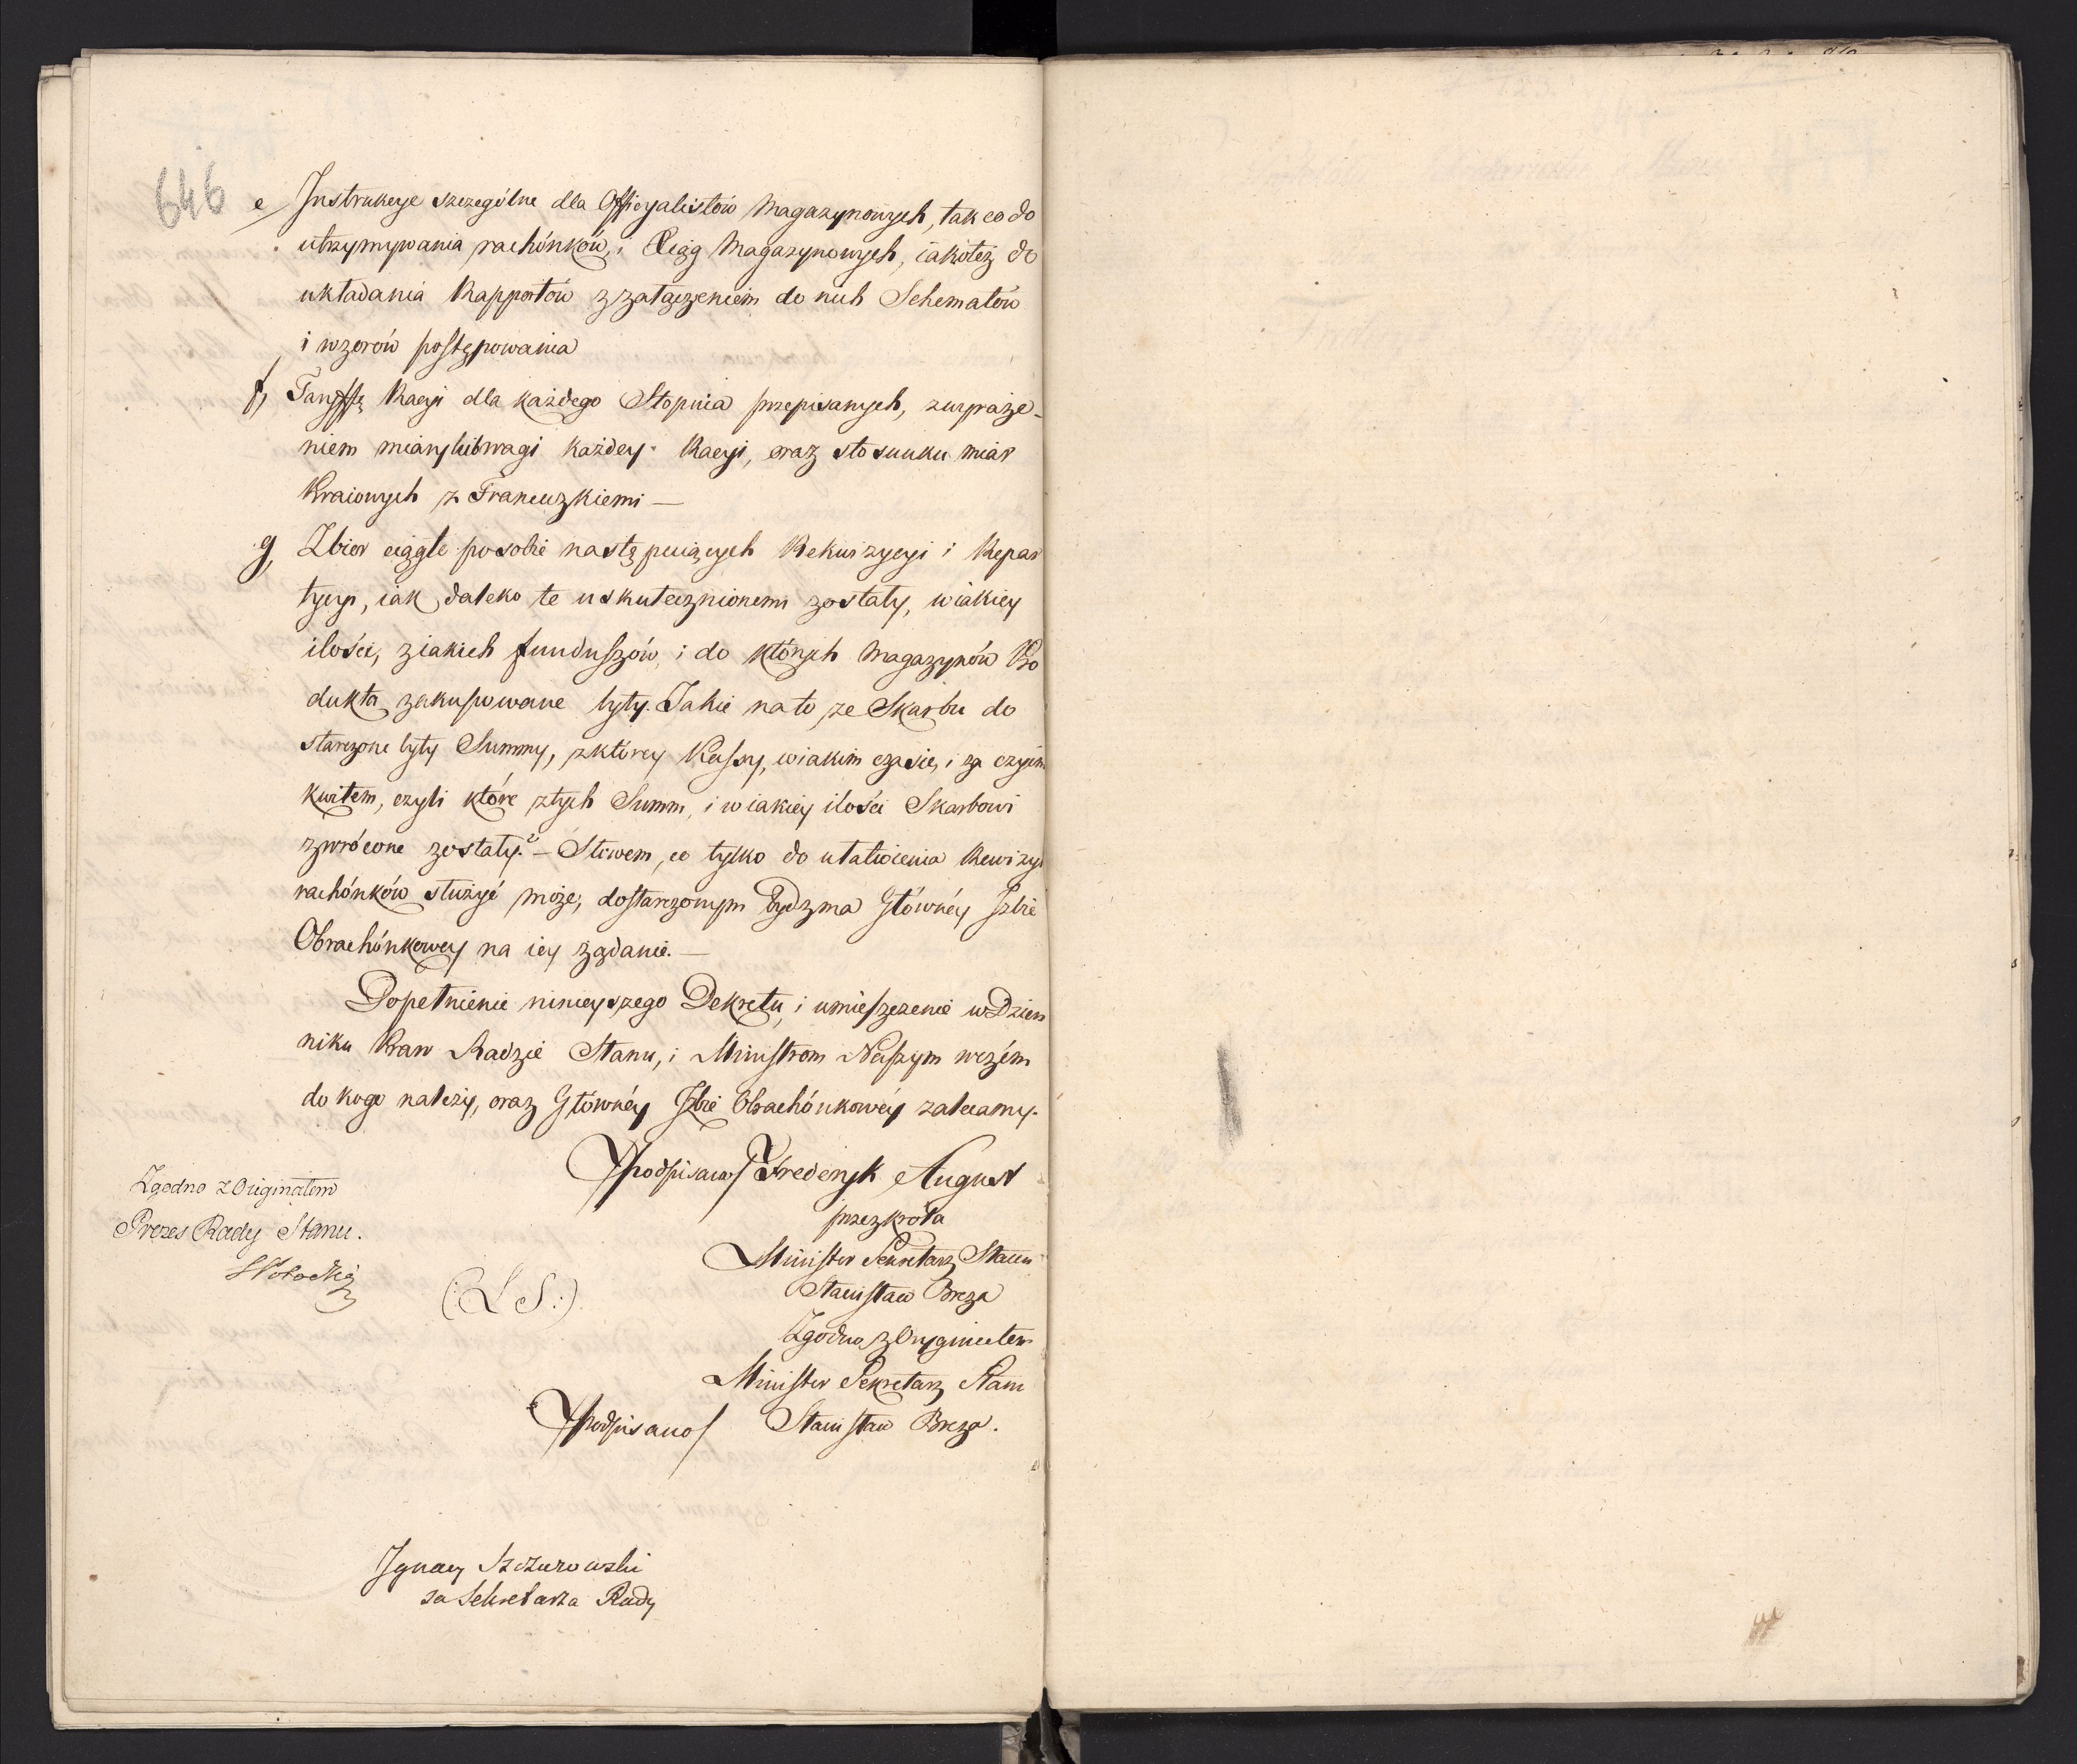 646
e/ Instrukcye szczególne dla Officyalistów Magazynowych, tak co do
utrzymywania rachónków, i Xiąg Magazynowych, iakoteż do
układania Rapportów z załączeniem do nich Schematów
i wzorów postępowania
f, Taryffę Racyi dla każdego Stopnia przepisanych, z wyraże-
niem miary lub wagi każdey Racyi, oraz stosunku miar
Kraiowych z Francuzkiemi —
g, Zbior ciągle po sobie następuiących Rekwizycyi i Repar
tycyi, iak daleko te uskutecznionemi zostały, w iakiey
ilości, z iakich funduszów, i do których Magazynów Pro
dukta zakupowane były. Jakie na to ze Skarbu do
starczone były Summy, z którey Kassy, w iakim czasie, i za czyim
kwitem, czyli które z tych Summ, i w iakiey ilości Skarbowi
zwrócone zostały? — Słowem, co tylko do ułatwienia Rewizyi
rachónków służyć może, dostarczonym bydź ma Głównéy Izbie
Obrachónkowey na iey żądanie. —
Dopełnienie ninieyszego Dekretu, i umieszczenie w Dzien
niku Praw Radzie Stanu, i Ministrom Naszym w czém
do kogo należy, oraz Głównéy Izbie Obrachónkowéy zalecamy.
/podpisano/ Frederyk August
przez Króla
Minister Sekretarz Stanu
Stanisław Breza
Zgodno z Oryginałem
Minister Sekretarz Stanu
/podpisano/ Stanisław Breza.
Zgodno z Originałem
Prezes Rady Stanu.
(: L S :)
Ignacy Szczurowski
za Sekretarza Rady